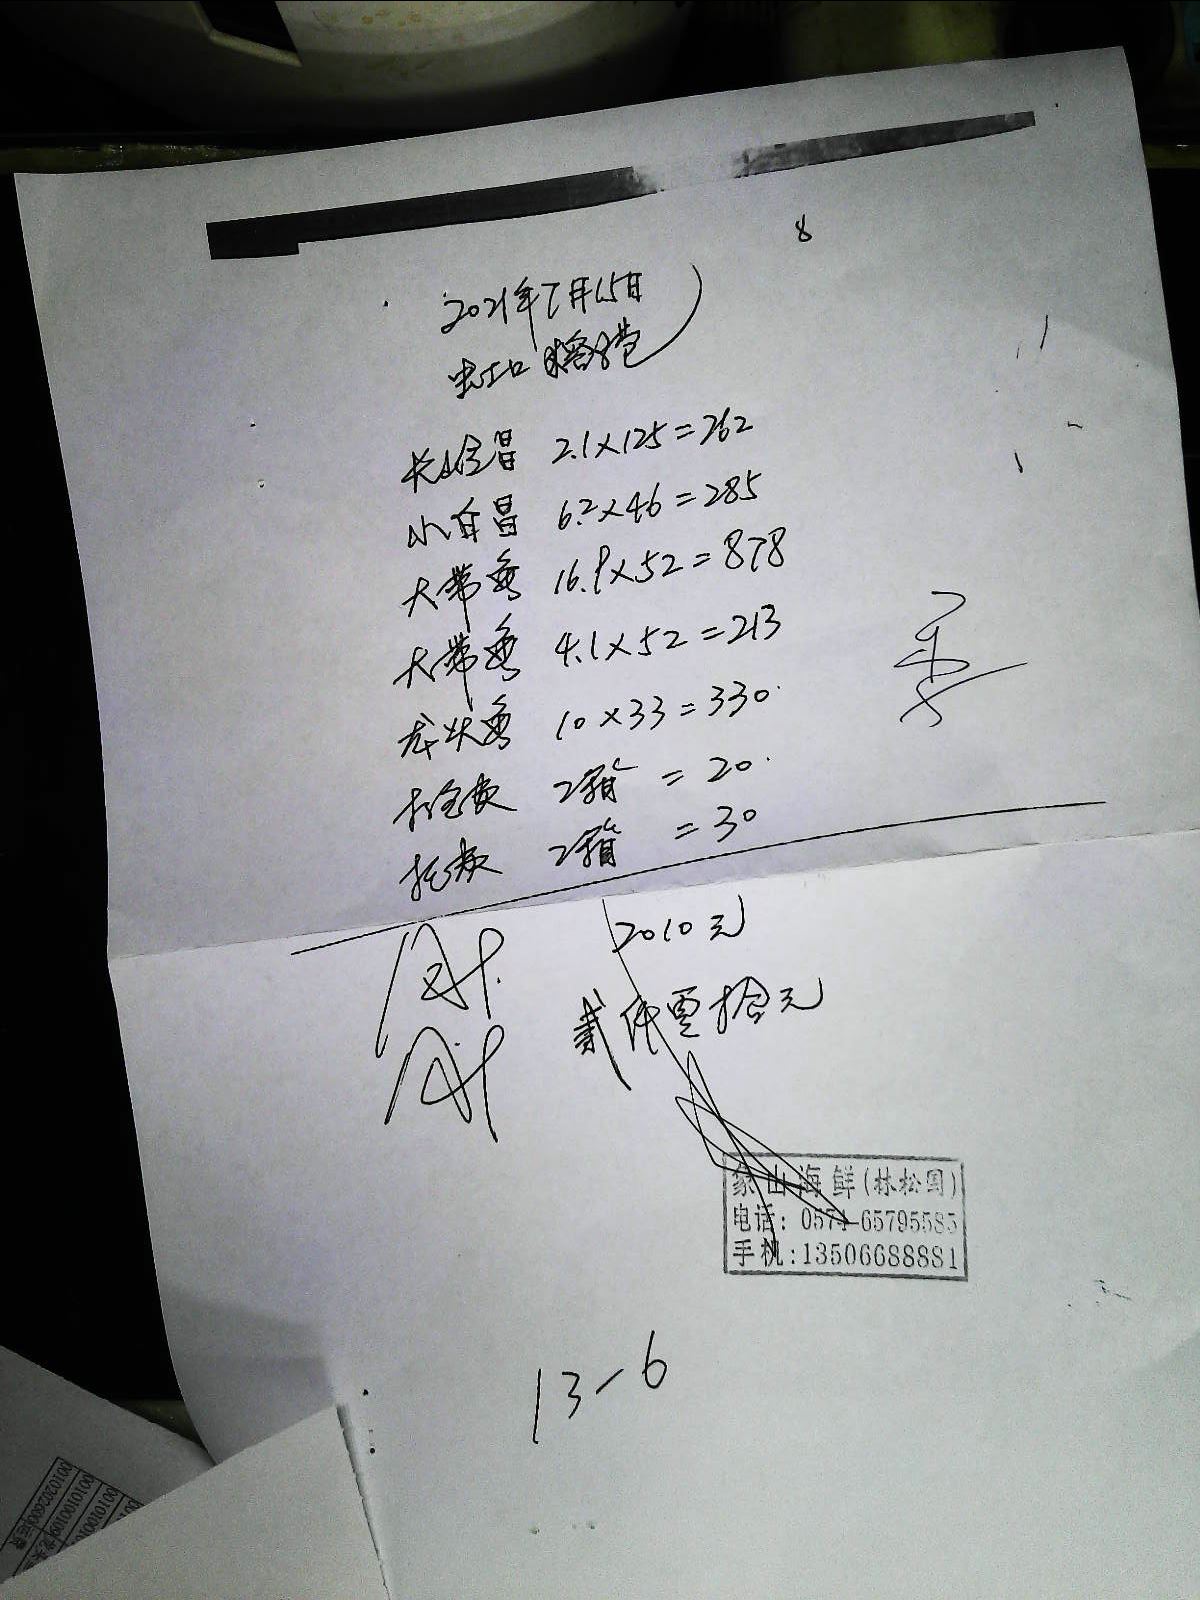 8
2021年7月15日
虹口
小白昌 6.2×46=285
大带鱼 16.9×52=878
大带鱼 4.1×52=213
龙头鱼 10×33=330
2.1×125=262
打包费 2箱=20
托费 2箱=30
2010元
贰仟零拾元
象山海鲜(林松国)
电话: 0574-65795585
手机:13506688881
13-6